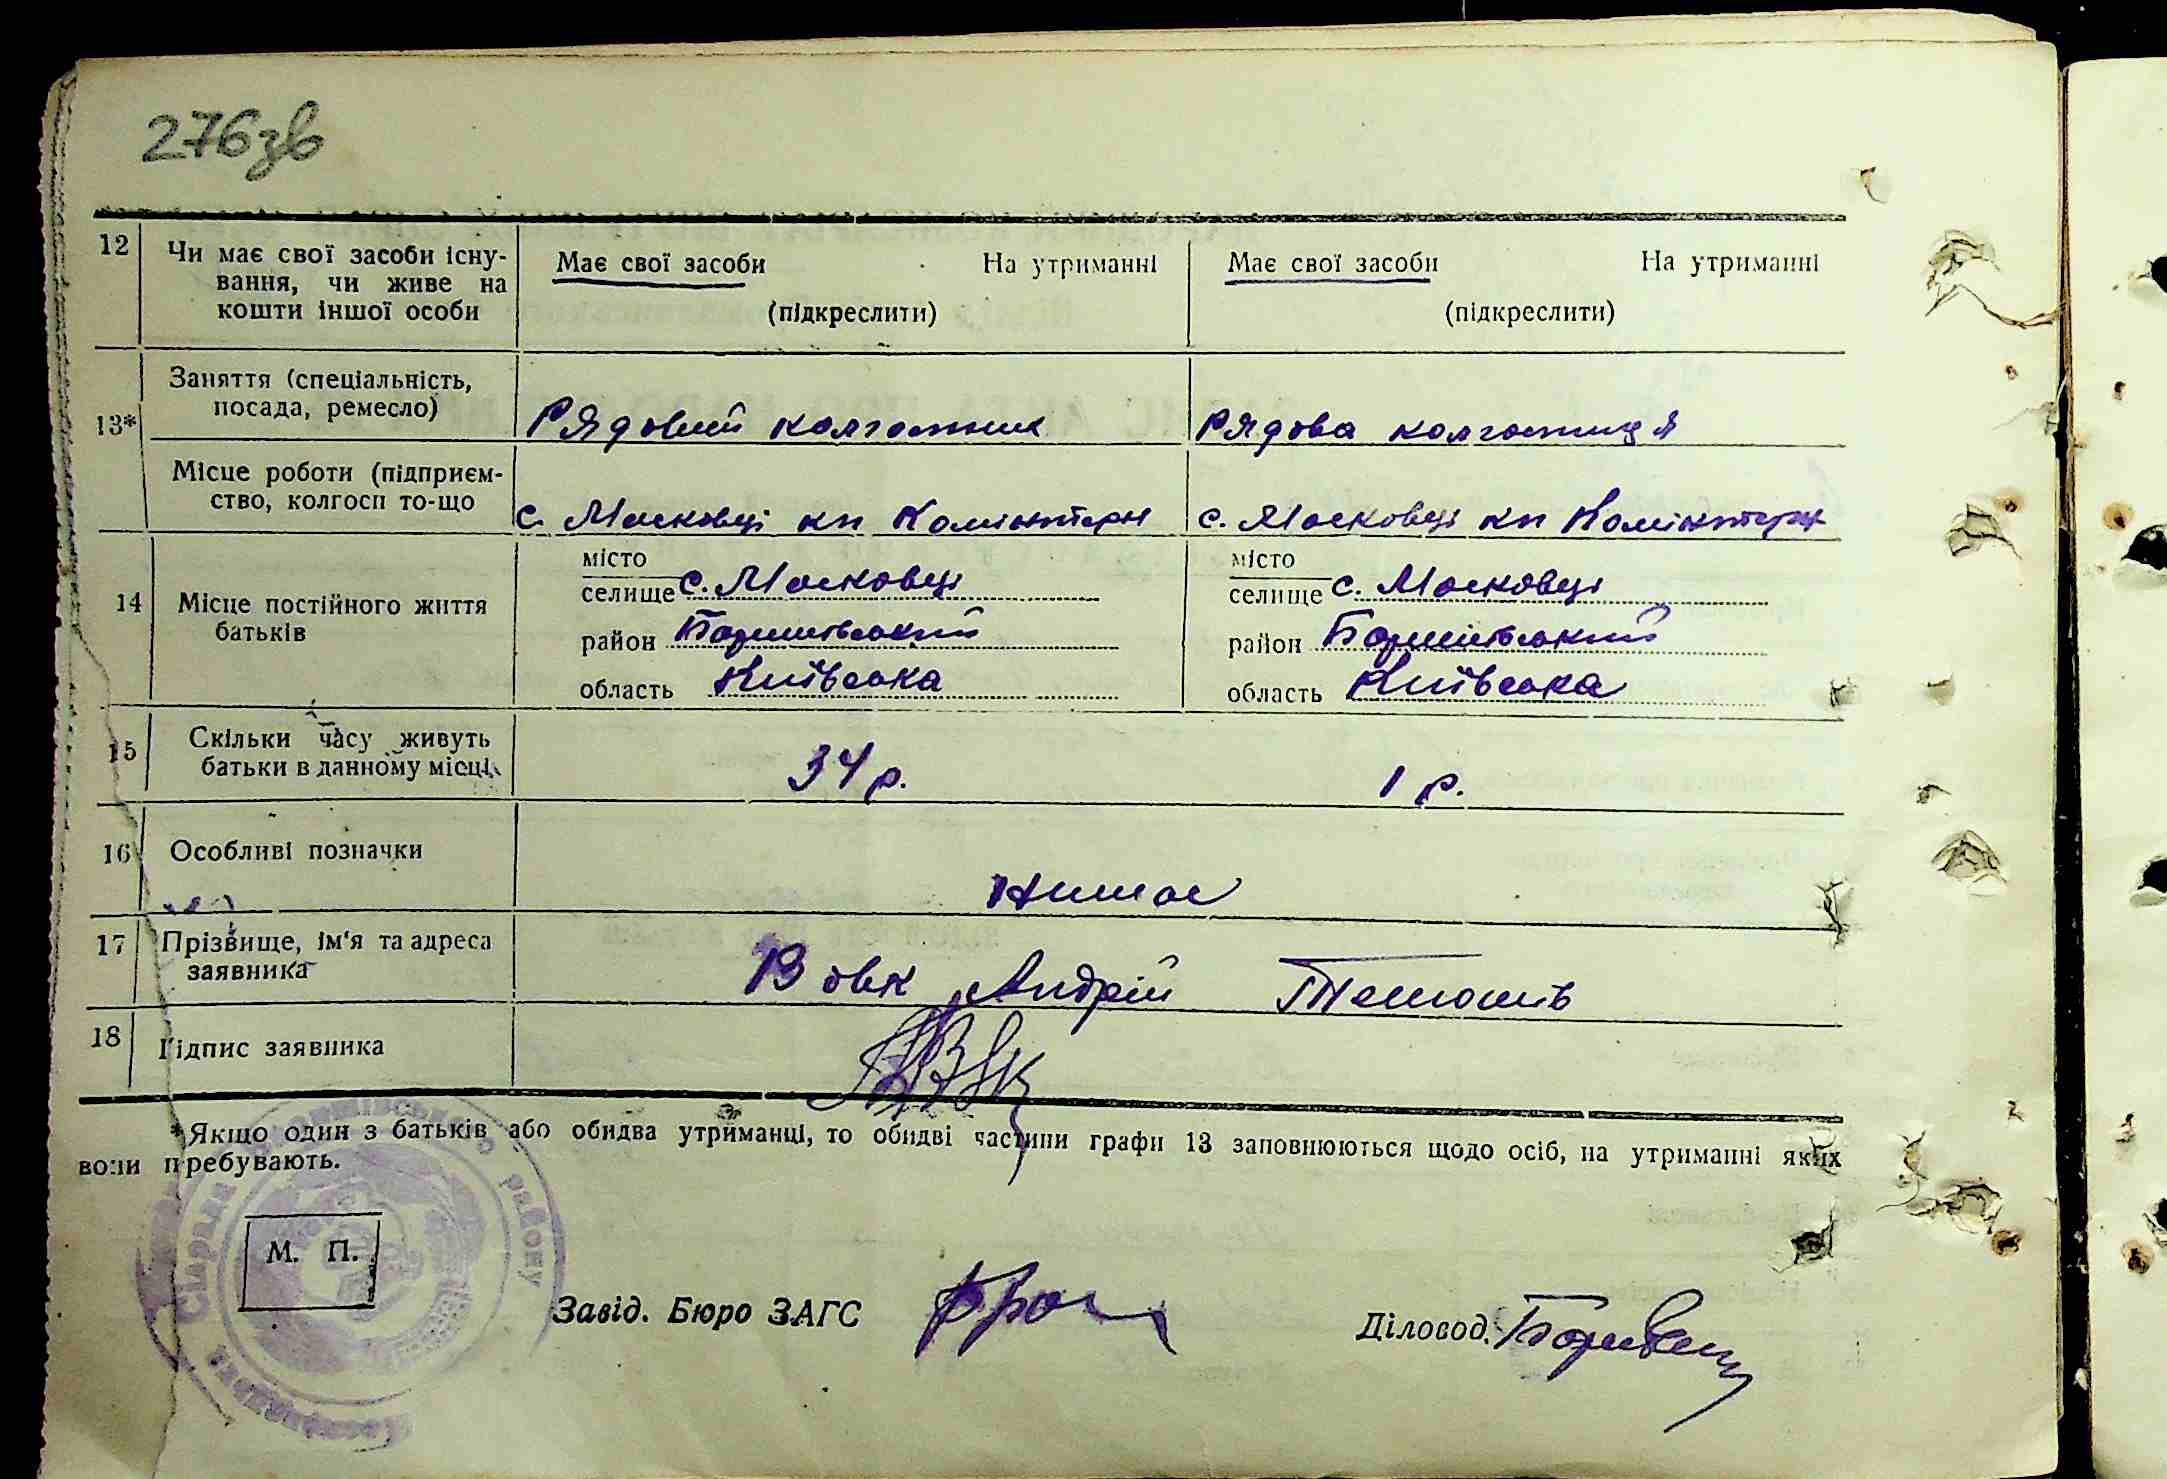 276зв
12 Чи має свої засоби існу- Має свої засоби На утриманні Має свої засоби На утриманні
вання, чи живе на
кошти іншої особи (підкреслити) (підкреслити)
13* Заняття (спеціальність,
посада, ремесло) Рядовий колгоспник Рядова колгоспниця
Місце роботи (підприєм-
ство, колгосп то-що с. Масковці кп Комінтерн с. Масковці кп Комінтерн
14 Місце постійного життя
батьків
місто місто
селище с. Масковці селище с. Масковці
район Баришівський район Баришівський
область Київська область Київська
15 Скільки часу живуть
батьки в данному місці 34 р. 1 р.
16 Особливі позначки
17 Прізвище, ім'я та адреса
заявника Вовк Андрій
18 Підпис заявника
*Якщо один з батьків або обидва утриманці, то обидві частини графи 13 заповнюються щодо осіб, на утриманні яких
вони пребувають.
М. П.
Завід. Бюро ЗАГС Діловод.
Баришівського району
Сільрада